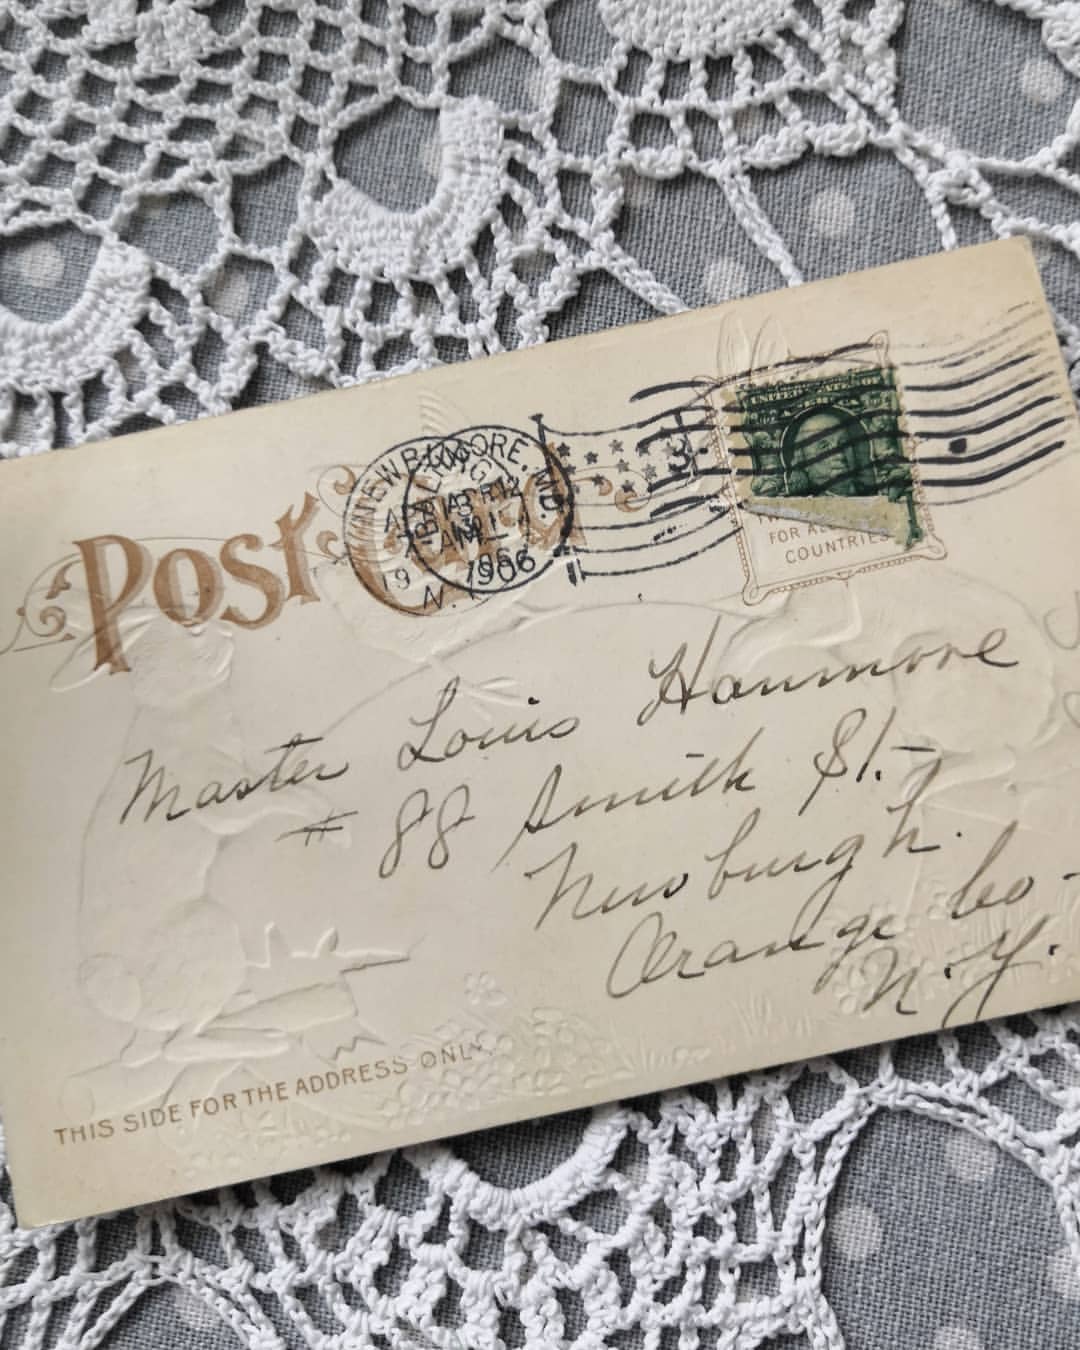 Post Card
BALTIMORE, MD.
APR 12
1906
NEWBURGH
N.Y.
3
UNITED STATES OF
AMERICA
FOR ALL
COUNTRIES
Master Louis Hanmore
# 88 Smith St.-
Newburgh.
Orange Co-
N.Y.
THIS SIDE FOR THE ADDRESS ONLY.